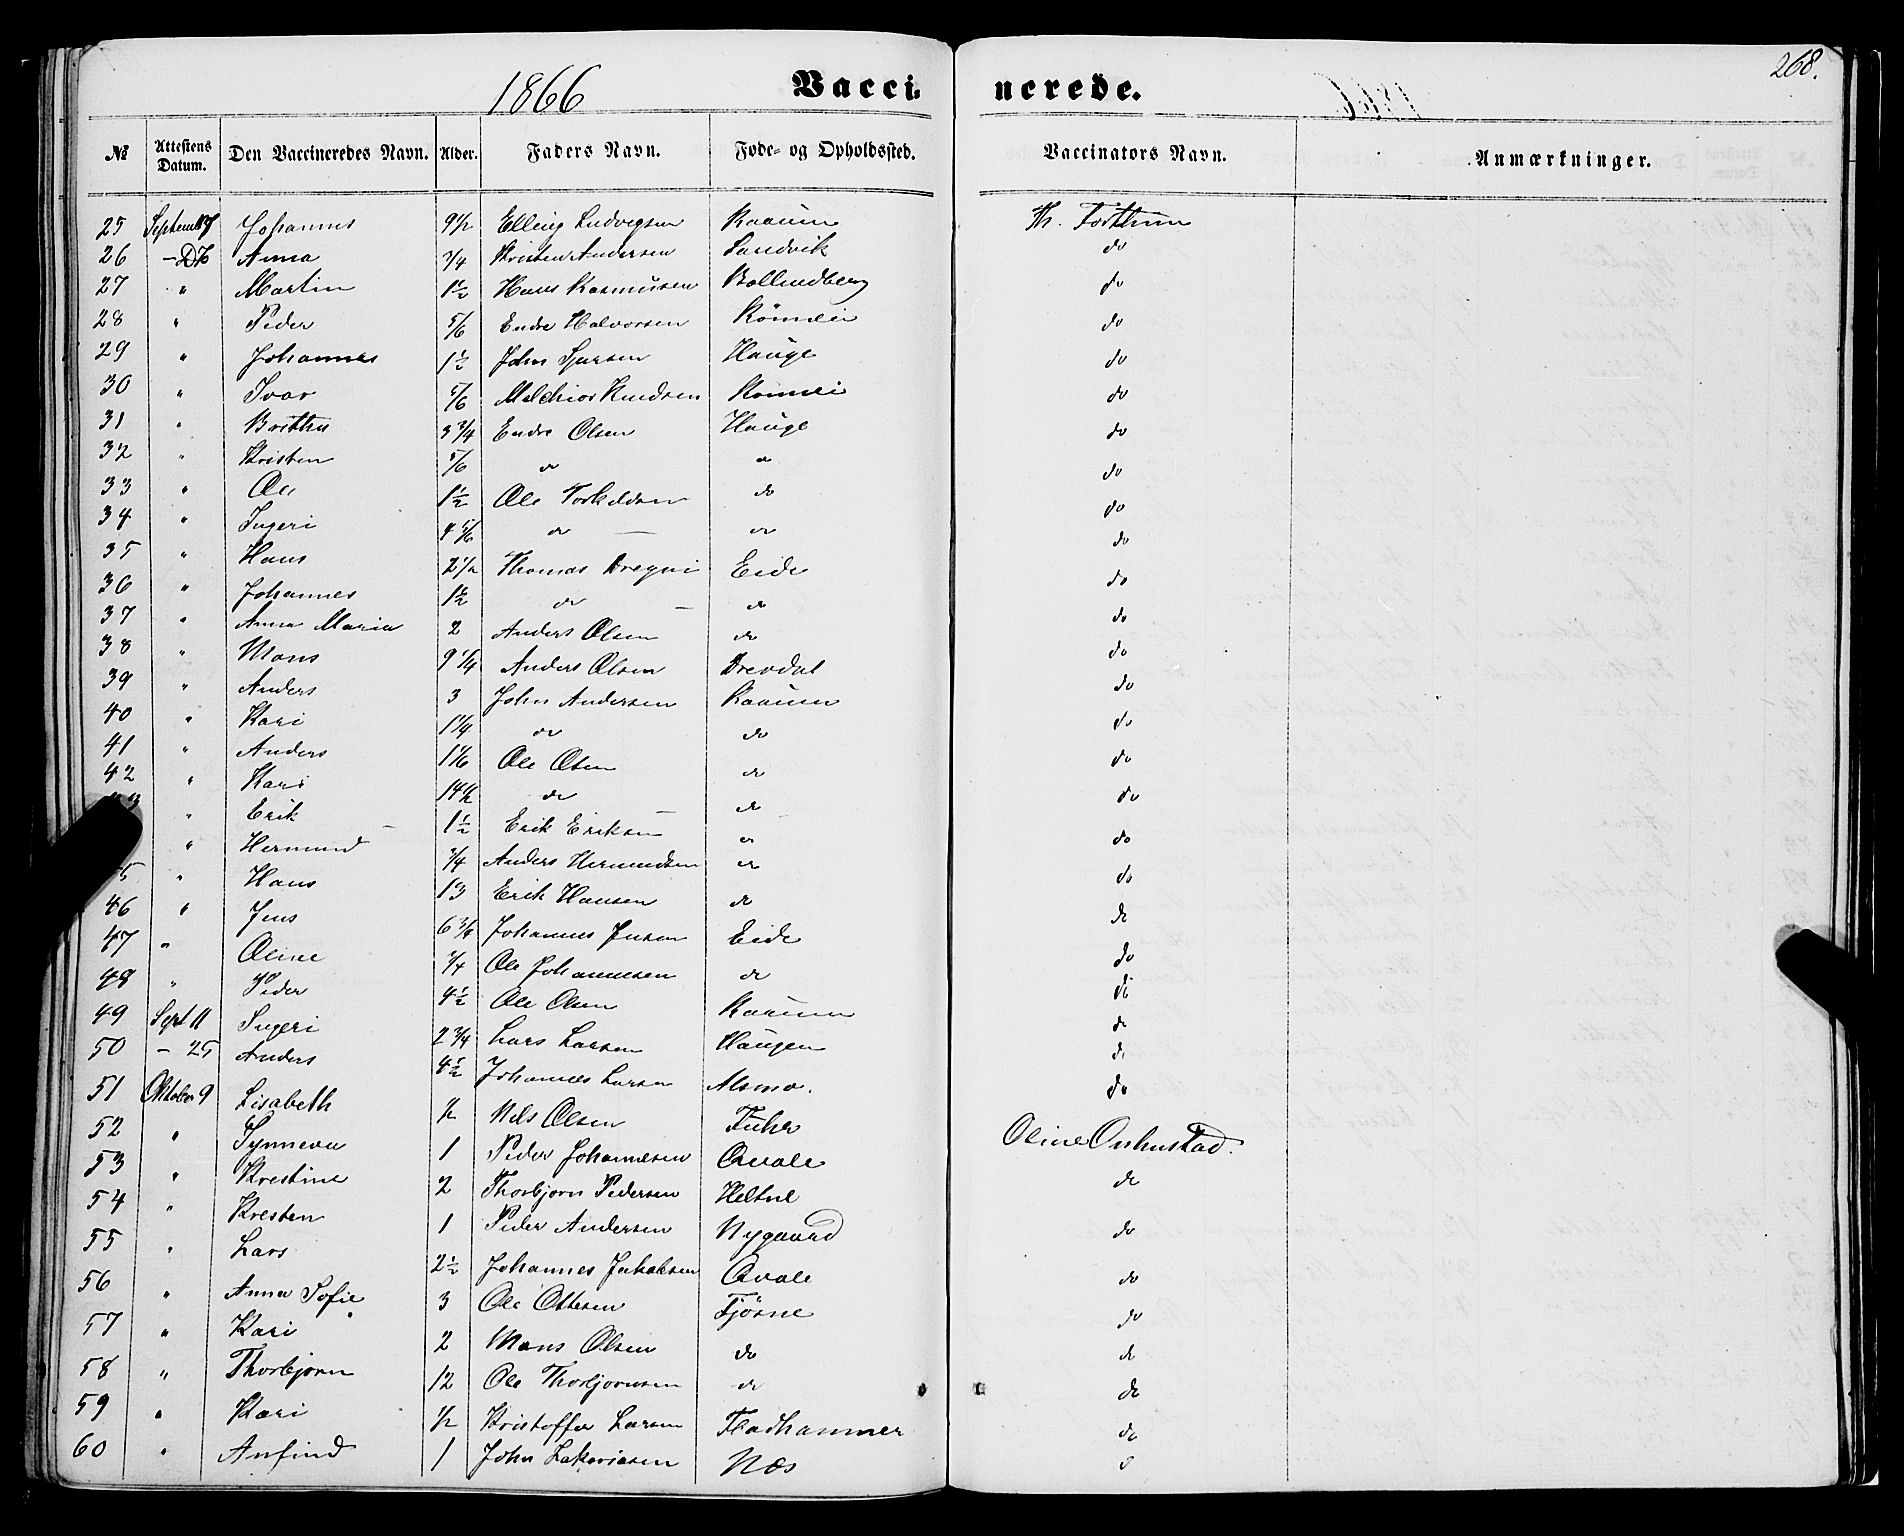 1866 Vacci- nerede. 268.
№ Attestens Datum. Den Vaccineredes Navn. Alder. Faders Navn. Føde- og Opholdssted. Vaccinators Navn. Anmærkninger.
25 Johannes 9½ Elling Ludvigsen Raaum
26 Anna ¾ Kristen Andersen Sandvik do
27 " Martin 1½ Hans Rasmussen do
28 " Peder 5/6 Endre Halvorsen do
29 " Johannes 1½ John Hauge do
30 " Ivar 5/6 Melchior Knudsen Romei do
31 " Britha 3¾ Endre Olsen Hauge do
32 " Kristen 5/6 do do do
33 " Ole 1½ Ole Torkeldsen do do
34 " Ingeri 4 5/6 do — do do
35 " Hans 2½ Thomas Dregni Eide do
36 " Johannes 1½ do — do do
37 " Anna Maria 2 Anders Olsen do do
38 " Mons 9¼ Anders Olsen Drevdal do
39 " Anders 3 John Andersen Raaum do
40 " Kari 1¼ do do do
41 " Anders 1 1/6 Ole Olsen do do
42 " Kari 14½ do do do
" Erik — 1½ Erik Eriksen do do
" Hermund ¾ Anders Hermundsen do do
5 " Hans 13 Erik Hansen do do
46 " Jens 6¾ Johannes Jensen Eide do
47 " Oline ¾ Ole Johannesen do do
48 " Peder 4½ Ole Olsen Raaum do
49 Sept 11 Ingeri 2¾ Lars Larsen Haugen do
50 — 25 Anders 4½ Johannes Larsen Alsmo. do
51 Oktober 9 Lisabeth ½ Nils Olsen Fuhr
52 " Synneva 1 Peder Johannesen Qvale Oline
53 " Krestine 2 Thorbjørn Pedersen Heltne do
54 " Kresten 1 Peder Andersen Nygaard do
55 " Lars 2½ Johannes Jakobsen Qvale do
56 " Anna Sofie 3 Ole Ottesen Fjøsne do
57 " Kari 2 Mons Olsen do do
58 " Thorbjørn 12 Ole Thorbjørnsen do do
59 " Kari ½ Kristoffer Larsen Fladhammer do
60 " Anfind 1 John Zakariasen Næs